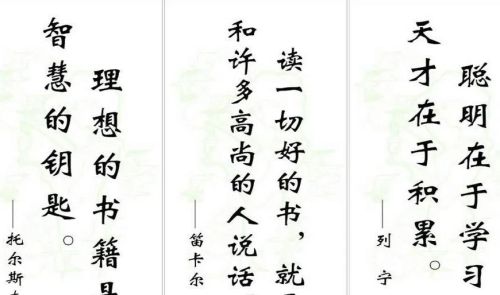 理想的书籍是
智慧的钥匙。
——托尔斯
读一切好的书，就
和许多高尚的人说话
——笛卡尔
聪明在于学习
天才在于积累。
——列宁